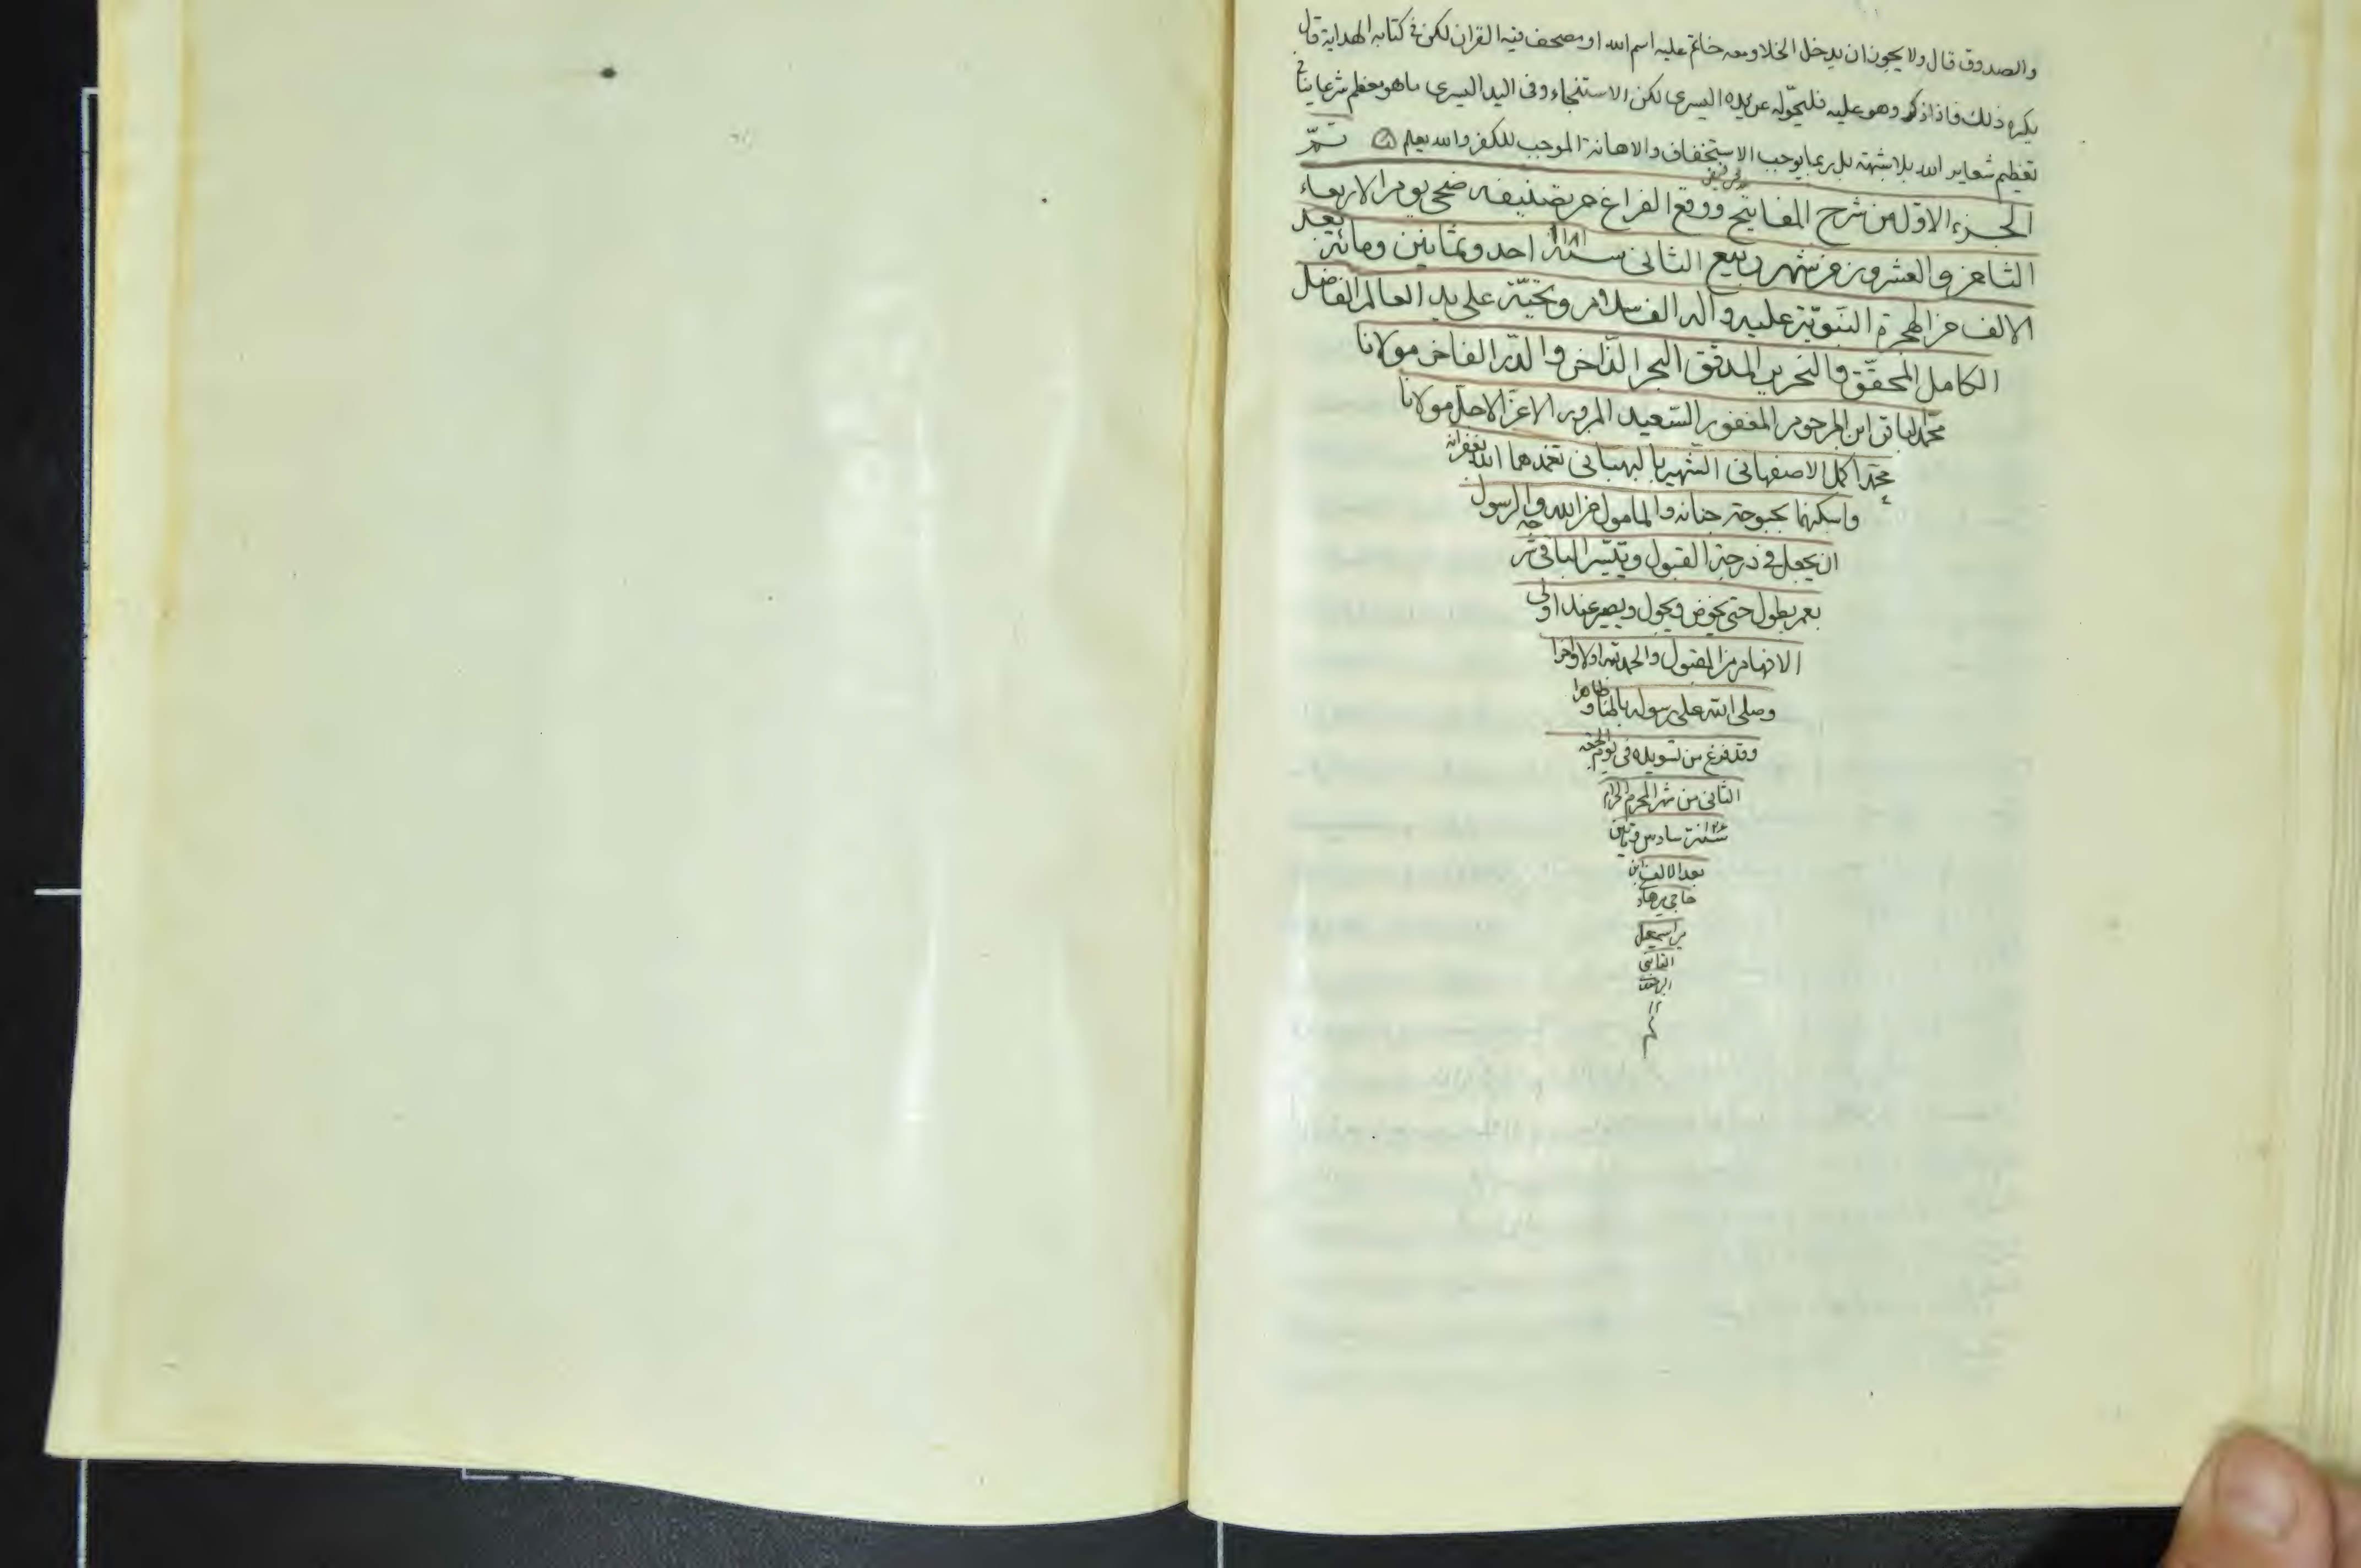 والصدوق قال ولا يجوز ان يدخل الخلا ومعه خاتم عليه اسم الله او مصحف فيه القران لكن في كتابه الهداية قال
يكره ذلك فاذا دخل وهو عليه فليحوله عن يده اليسرى لكن الاستنجاء وفى اليد اليسرى ما هو معظم شرعا ينافي
تعظيم شعاير الله بلا شبهة بل ربما يوجب الاستخفاف والاهانة الموجب للكفر والله يعلم تم
الجزء الاول من شرح المفاتيح ووقع الفراغ من تصنيفه ضحى يوم الاربعاء
الثامن والعشرون من شهر ربيع الثانى سنة ١١٨١ احد وثمانين ومائة بعد
الالف من الهجرة النبوية عليه واله الف سلام وتحية على يد العالم الفاضل
الكامل المحقق والنحرير المدقق البحر الذاخر والدر الفاخر مولانا
محمد باقر ابن المرحوم المغفور السعيد المبرور الاعز الاجل مولانا
محمد اكمل الاصفهانى الشهير بالبهبهانى تغمدهما الله بغفرانه
واسكنهما بحبوحة جنانه والمامول من الله والرسول
ان يجعل في درجة القبول وتيسير الباقى
بعمر يطول حتى يخوض ويجول ويصير عند اولى
الافهام من المقبول والحمد لله اولا واخرا
وصلى الله على رسوله باطنا وظاهرا
وقد فرغ من تسويده فى يوم الجمعة
الثانى من شهر المحرم الحرام
سنة سادس ومأتين
بعد الالف ابن
حاجى
بن اسمعيل
القاينى